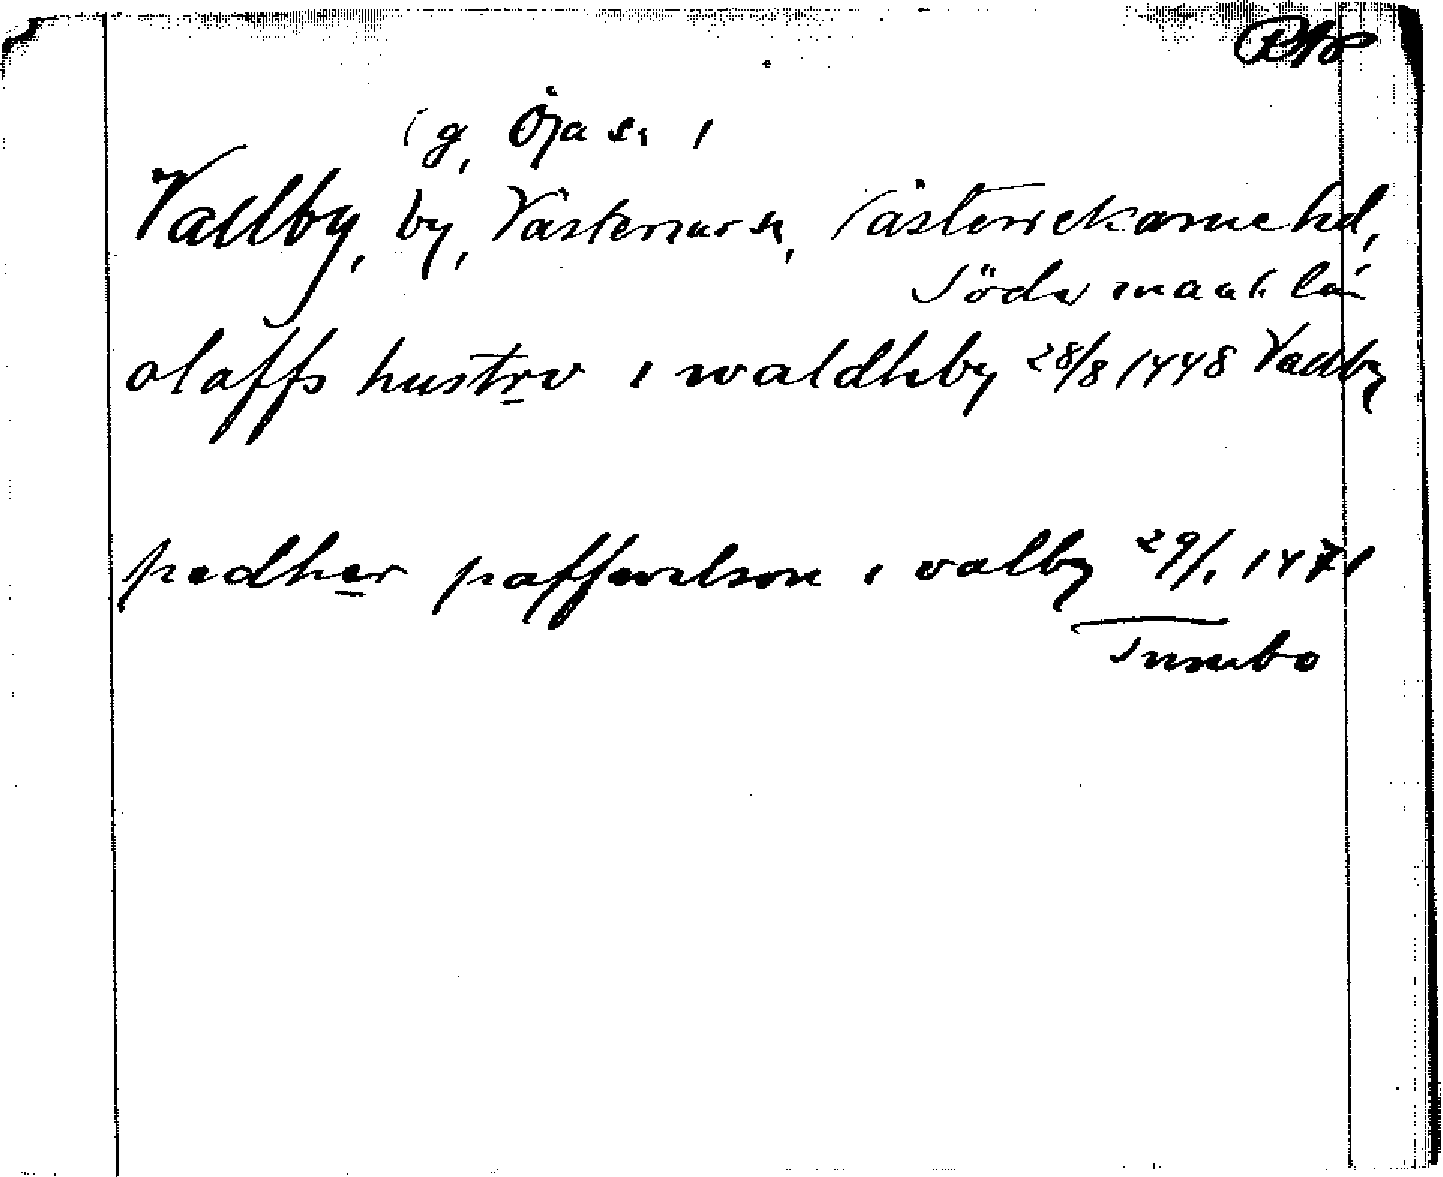 (g, Öja sn)
Vallby, by, Västermo sn, Västerrekarne hd,
Södermanl. län
olaffs hustrv i waldhby 28/8 1448 Vadby
pedher paffwelson i valby 29/1 1471
Tumbo